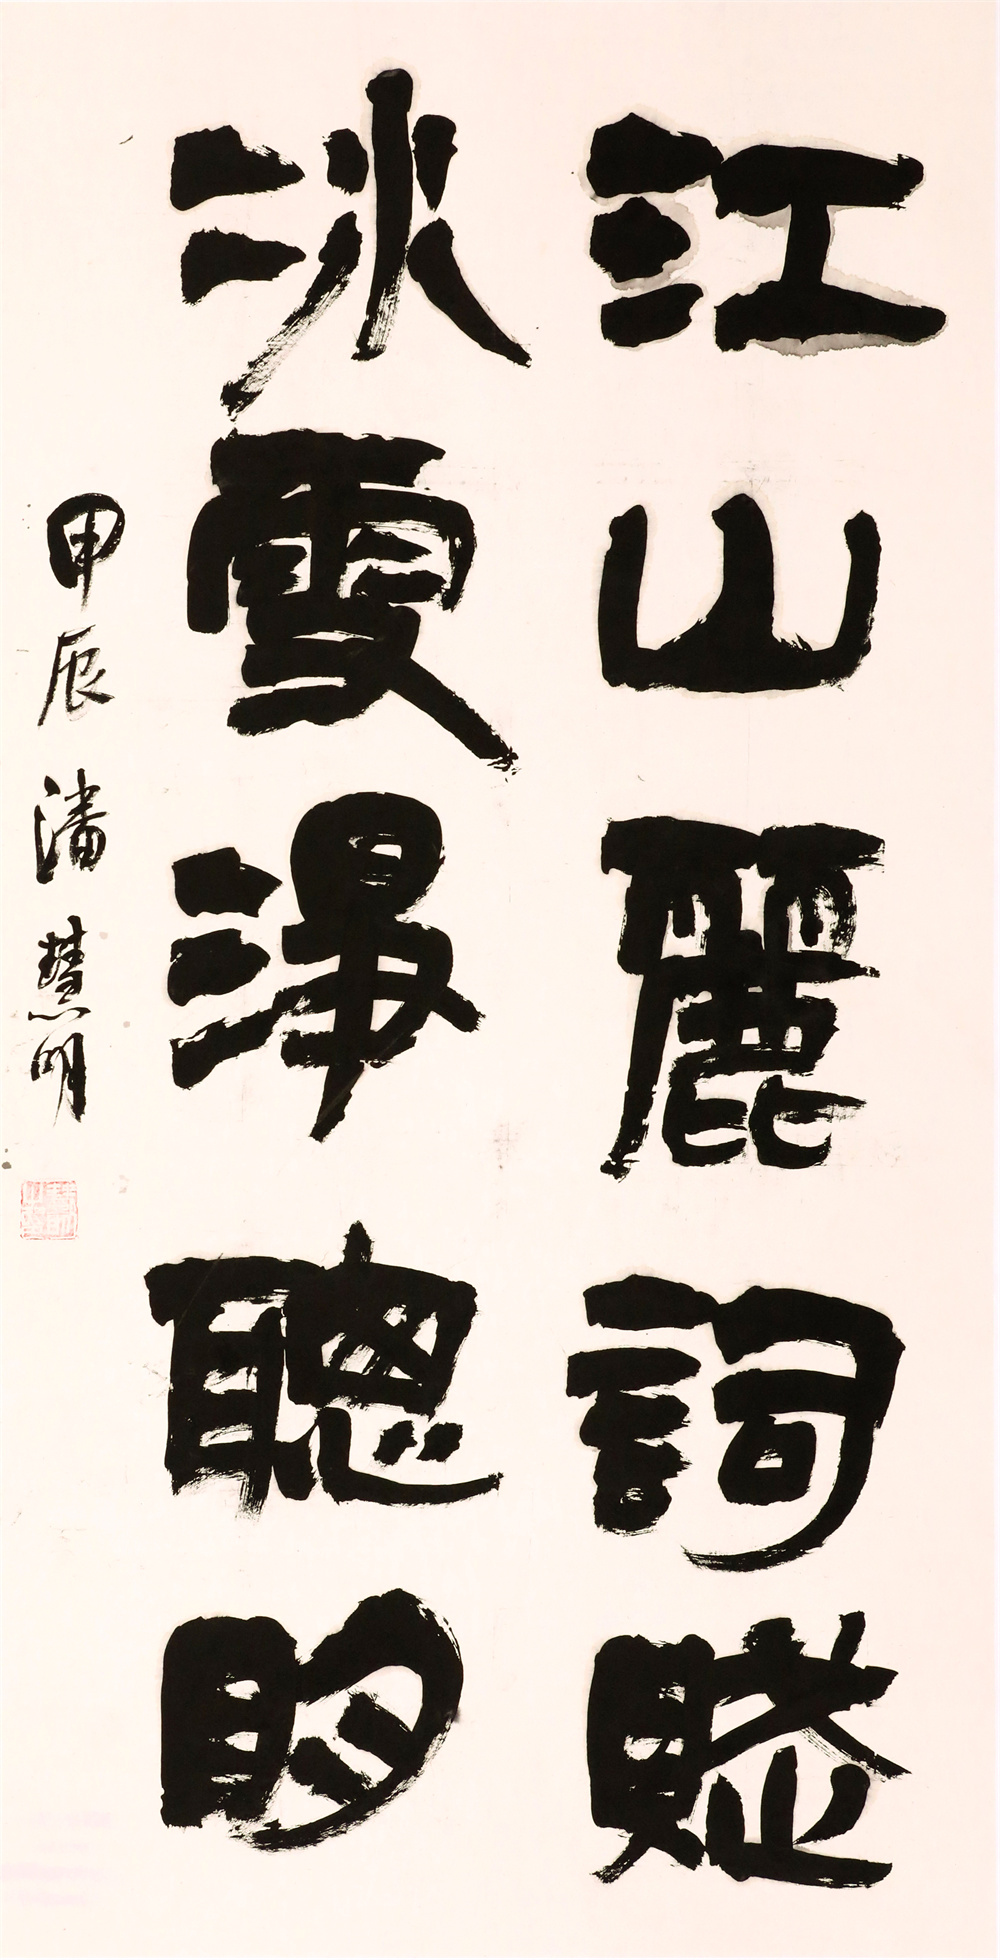 江山麗詞賦
冰雪淨聰明
甲辰 潘慧明